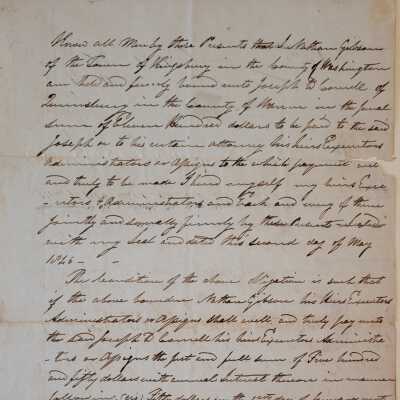 Know all Men by these Presents that I Nathan Gibson
of the Town of Kingsbury in the County of Washington
am held and firmly bound unto Joseph D Cornell of
Queensbury in the County of Warren in the penal
sum of Eleven Hundred dollars to be paid to the said
Joseph or to his certain attorney his heirs Executors
Administrators or Assigns to the which payment well
and truly to be made I bind myself my heirs Exec
utors & Administrators and Each and every of them
jointly and severally firmly by these Presents Sealed
with my Seal and dated this second day of May
1846
The Condition of the above Obligation is such that
if the above bounden Nathan Gibson his heirs Executors
Administrators or Assigns shall well and truly pay unto
the said Joseph D Cornell his heirs Executors Administra
tors or Assigns the just and full sum of Five hundred
and fifty dollars with annual Interest thereon in manner
following (viz) Fifty dollars on the first day of January next